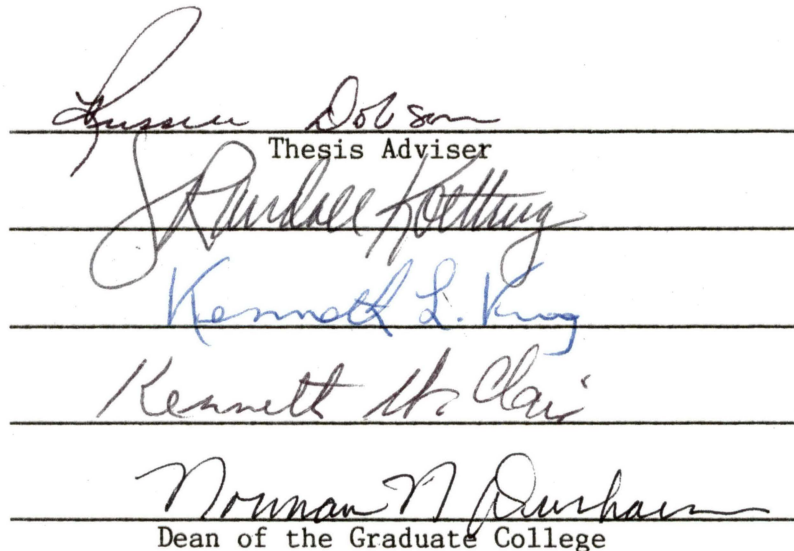 Russell Dobson
Thesis Adviser
J Randall Koetting
Kenneth L. King
Kenneth St. Clair
Norman N Durham
Dean of the Graduate College